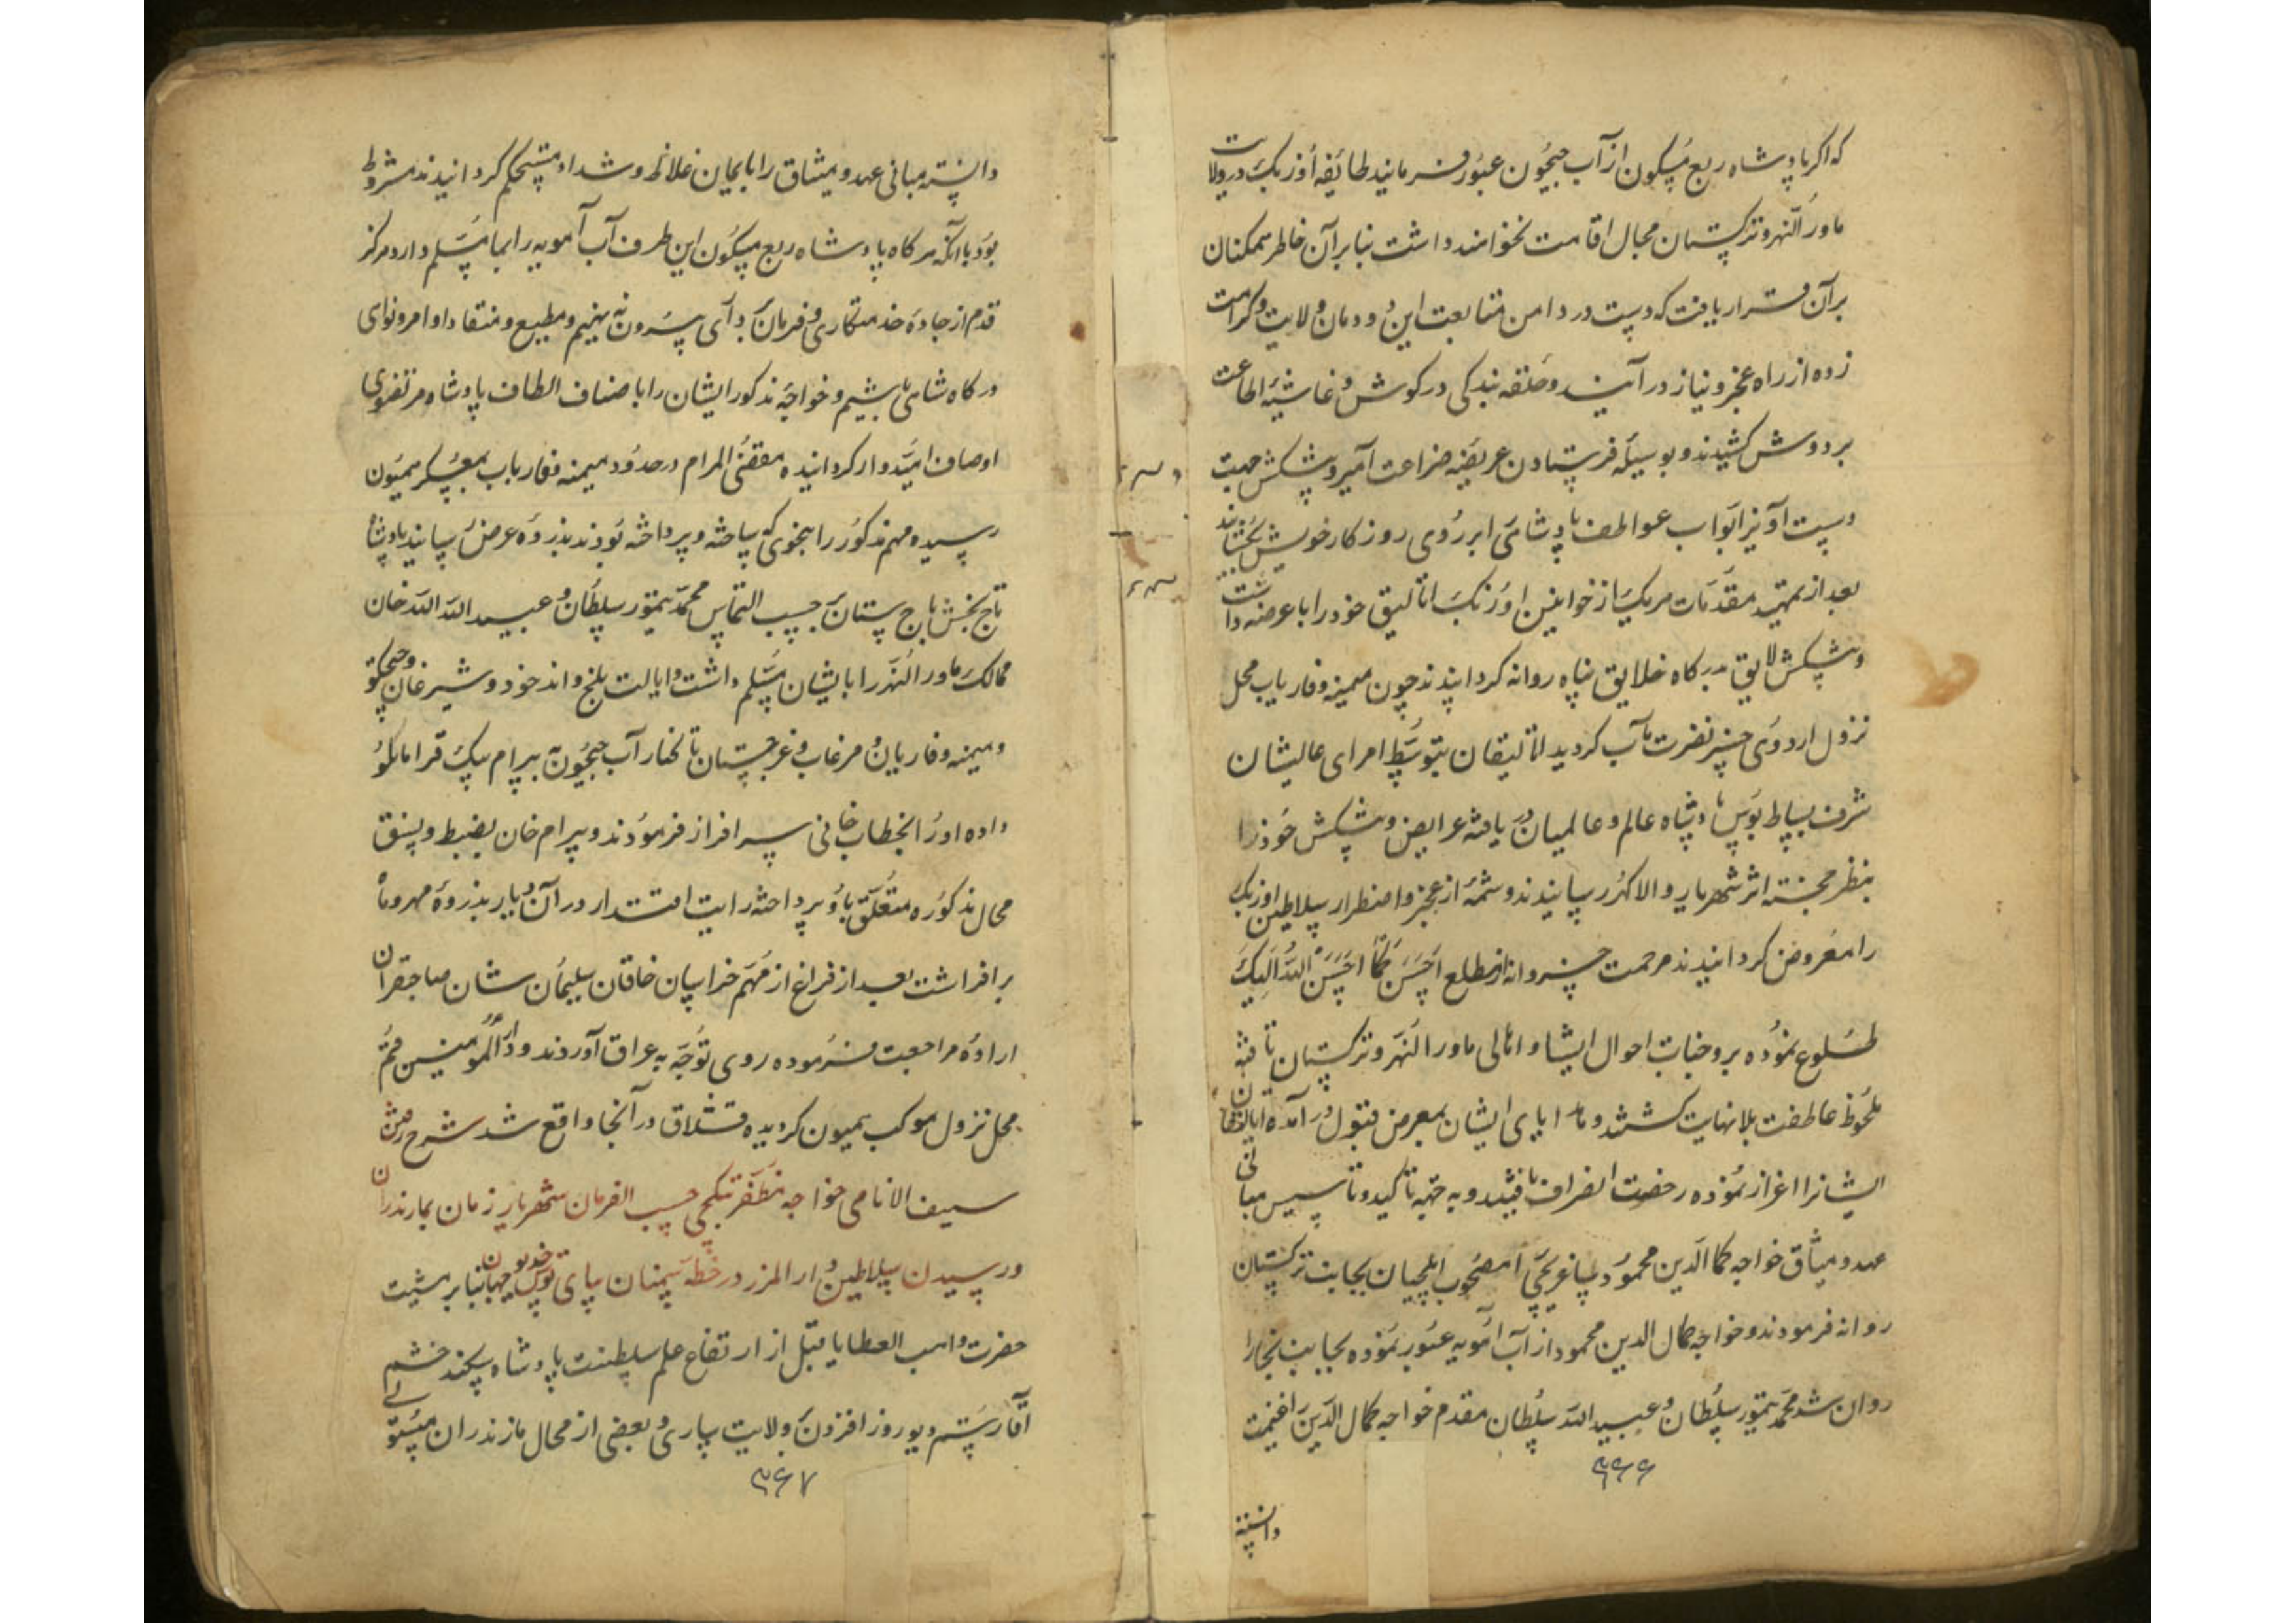 که اکر پادشاه ربع مسکون از آب جیحون عبور فرمایند طائفه اوزبک در ولایت
ماورالنهر و ترکستان مجال اقامت نخواهند داشت بنابرآن خاطر همکنان
برآن قرار یافت که دست در دامن متابعت این دودمان ولایت و کرامت
زده از راه عجز و نیاز درآیند و حلقه بندکی در کوش و غاشیه اطاعت
بر دوش کشیدند و بوسیله فرستادن عریضه ضراعت آمیز و پیشکش جهت
دست آویز ابواب عواطف پادشاهی بر روی روزکار خویش بخشایند
بعد از تمهید مقدمات هر یک از خوانین اوزبک اتالیق خود را با عرضه داشت
و پیشکش لایق بدرکاه خلایق پناه روانه کردانیدند چون میمنه و فاریاب محل
نزول اردوی خسر نصرت مآب کردید اتالیقان بتوسط امرای عالیشان
شرف بساط بوس پادشاه عالم و عالمیان دریافته عرایض و پیشکش خود را
بنظر خجسته اثر شهریار والا کهر رسانیدند و شمه از عجز و اضطرار سلاطین اوزبک
را معروض کردانیدند مرحمت خسروانه از مطلع احسن کما احسن الله الیک
طلوع نموده بر وجنات احوال ایشان و اهالی ماورالنهر و ترکستان تافته
ملحوظ عاطفت بلانهایت کشتند و هدایای ایشان بمعرض قبول درآمده اتالیقان
ایشانرا اعزاز نموده رخصت انصراف یافتند و به جهته تاکید و تاسیس مبانی
عهد و میثاق خواجه کمال الدین محمود ساغرچی را مصحوب ایلچیان بجانب ترکستان
روانه فرمودند و خواجه کمال الدین محمود از آب آمویه عبور نموده بجانب بخارا
روان شد محمد تیمور سلطان و عبیدالله سلطان مقدم خواجه کمال الدین را غنیمت
۳۶۶
دانسته
دانسته مبانی عهد و میثاق را بایمان غلاظ و شداد مستحکم کردانیدند مشروط
بود بآنکه هرکاه پادشاه ربع مسکون این طرف آب آمویه را بما مسلم دارد هرکز
قدم از جاده خدمتکاری و فرمان برداری بیرون نه نهیم و مطیع و منقاد اوامر و نواهی
درکاه شاهی باشیم و خواجه مذکور ایشان را باصناف الطاف پادشاه مرتضوی
اوصاف امیدوار کردانیده مقضی المرام در حدود میمنه و فاریاب بمعسکر همیون
رسیده مهم مذکور را بنحوی که ساخته و پرداخته بودند بذروه عرض رسانید پادشاه
تاج بخش باج ستان بحسب التماس محمد تیمور سلطان و عبید الله الله خان
ممالک ماورالنهر را بایشان مسلم داشت و ایالت بلخ و اندخود و شبرغان و چیچکتو
و میمنه و فاریاب و مرغاب و غرجستان تا کنار آب جیحون به بیرام بیک قرامانلو
داده او را بخطاب خانی سرافراز فرمودند و بیرام خان بضبط و نسق
محال مذکوره متعلق باو پرداخته رایت اقتدار در آن دیار بذروه مهر و ماه
برافراشت بعد از فراغ از مهم خراسان خاقان سلیمان شان صاحبقران
اراده مراجعت فرموده روی توجه به عراق آوردند و دارالمومنین قم
محل نزول موکب همیون کردیده قشلاق در آنجا واقع شد شرح رفتن
سیف الانامی خواجه مظفر تبکچی حسب الفرمان شهریار زمان بمازندران
و رسیدن سلاطین دارالمرز در خطه سمنان بپای بوس خدیو جهانبان بنابر مشیت
حضرت واهب العطایا قبل از ارتفاع علم سلطنت پادشاه سکندر حشم
آقا رستم دیو روز افزون بر ولایت ساری و بعضی از محال مازندران مستولی
۳۶۷